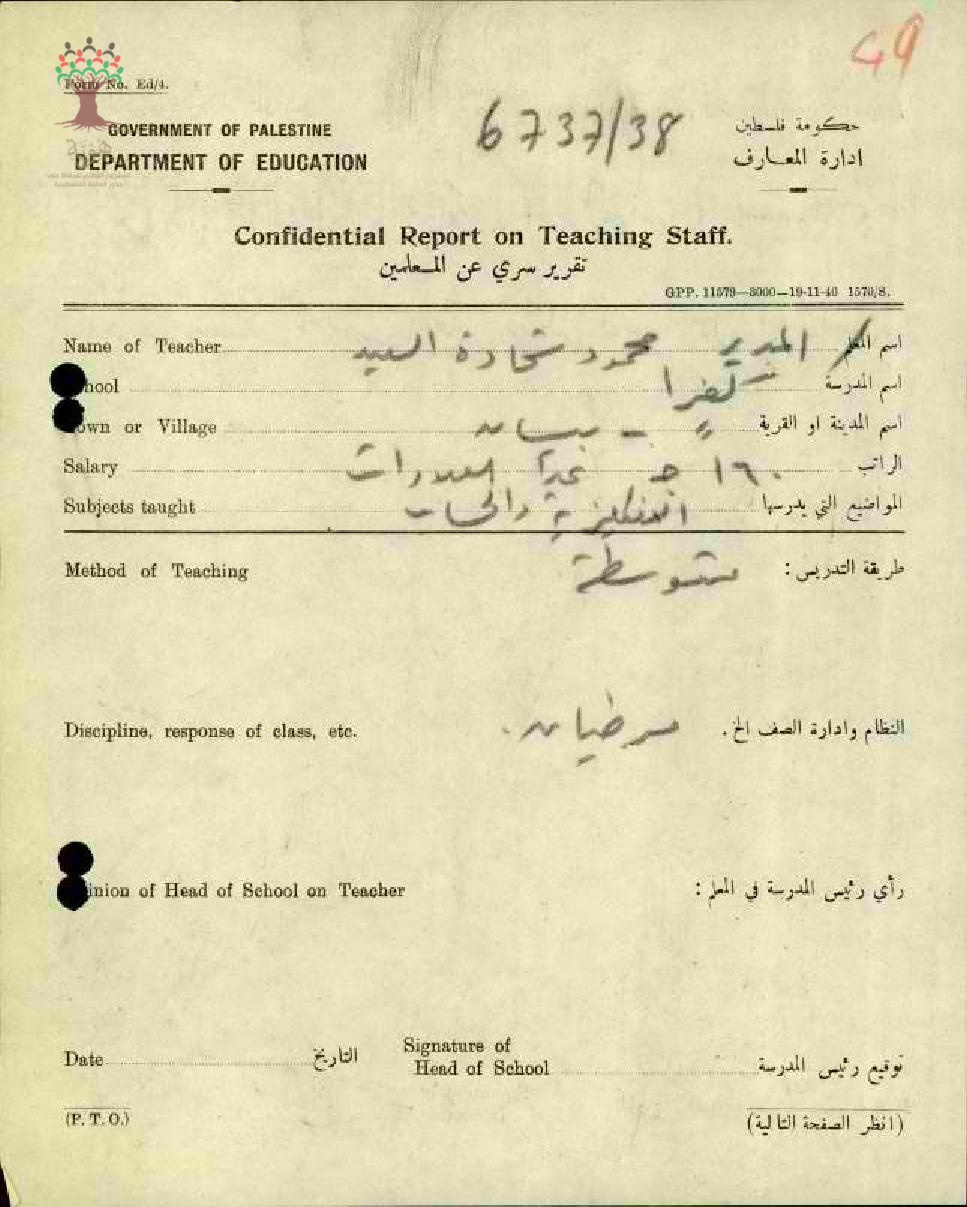 49
Form No. Ed/4.
6737/38
GOVERNMENT OF PALESTINE
حكومة فلسطين
DEPARTMENT OF EDUCATION
ادارة المعارف
Confidential Report on Teaching Staff.
تقرير سري عن المعلمين
GPP. 11579—3000—19-11-40 1570/8.
Name of Teacher المدير محمود شحادة السيد اسم المعلم
hool كفرا اسم المدرسة
own or Village - بيسان اسم المدينة او القرية
Salary ١٦٠ ج عدا العلاوات الراتب
Subjects taught الانكليزية والحساب المواضيع التي يدرسها
Method of Teaching متوسطة طريقة التدريس :
Discipline, response of class, etc. مرضيان. النظام وادارة الصف الخ.
inion of Head of School on Teacher رأي رئيس المدرسة في المعلم :
Date التاريخ Signature of Head of School توقيع رئيس المدرسة
(P. T. O.) (انظر الصفحة التالية)